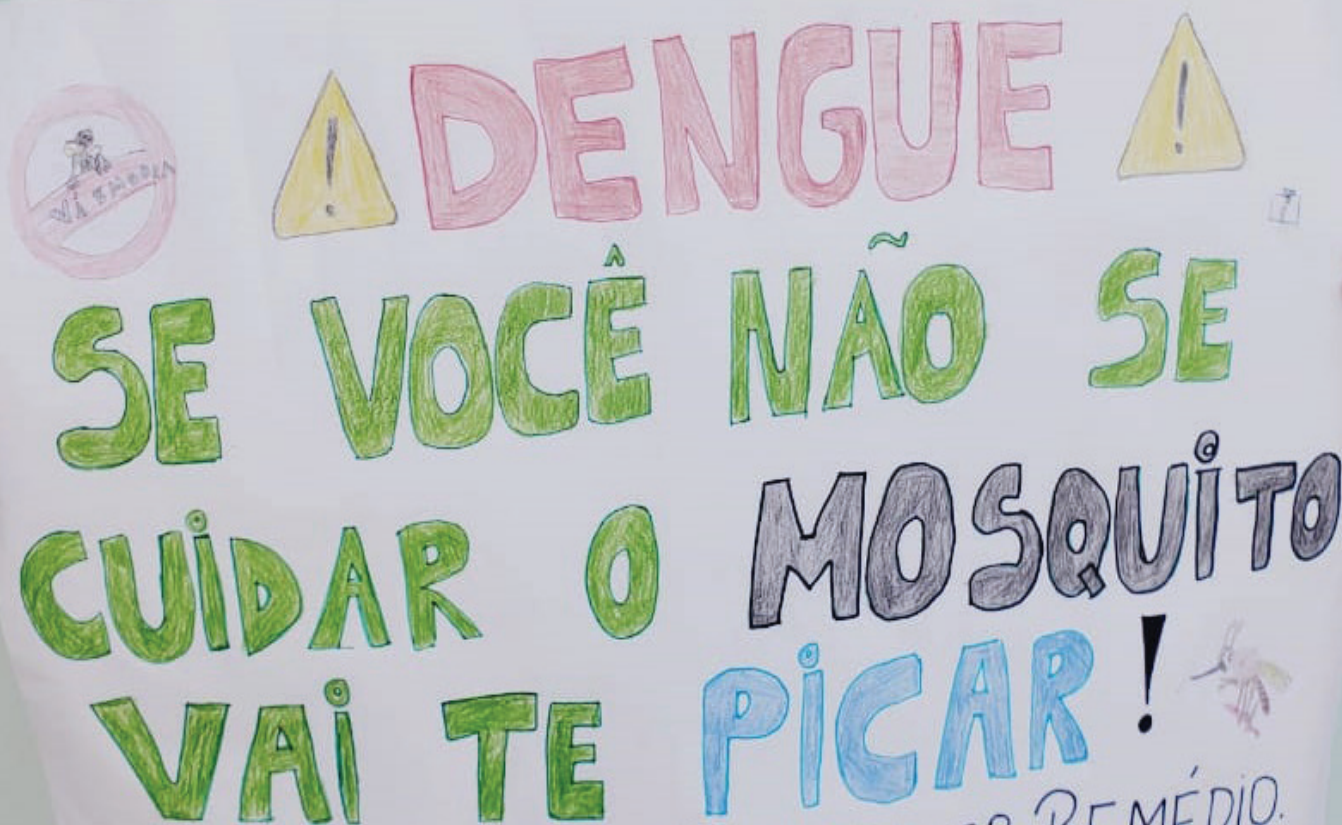 DENGUE
SE VOCÊ NÃO SE
CUIDAR O MOSQUITO
VAI TE PICAR!
REMÉDIO.